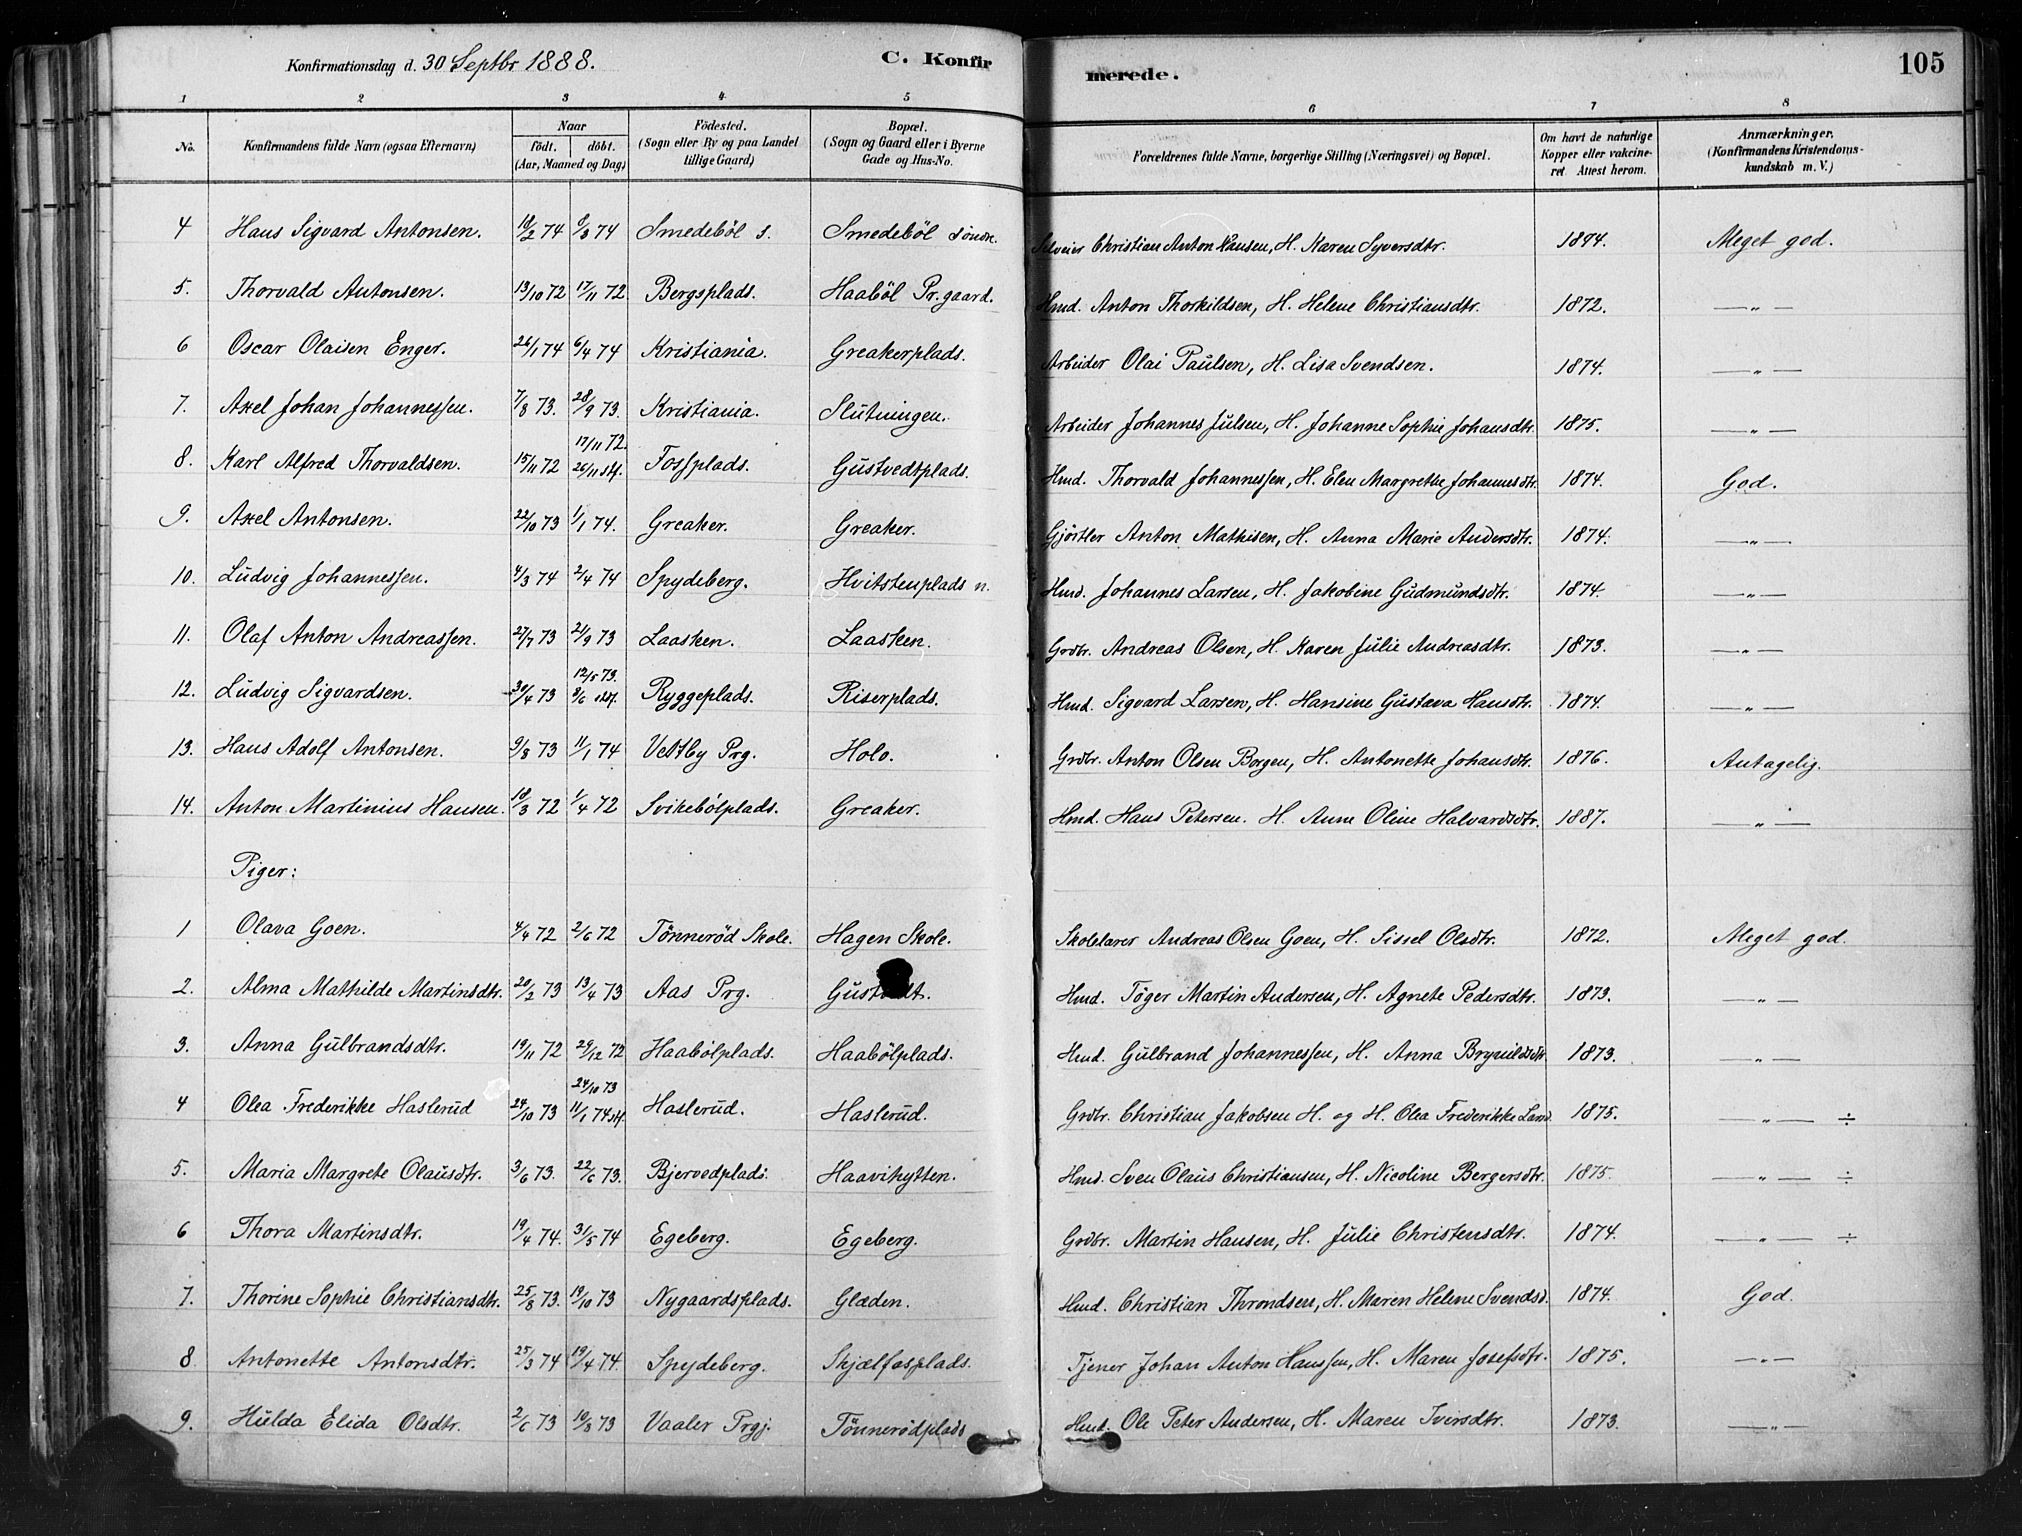 Konfirmationsdag d. 30 Septbr 1888. C. Konfirmerede. 105
1 2 3 4 5 6 7 8
No. Konfirmandens fulde Navn (ogsaa Efternavn) Naar födt. döbt. (Aar, Maaned og Dag) Födested. (Sogn eller By og paa Landet tillige Gaard) Bopæl. (Sogn og Gaard eller i Byerne Gade og Hus-No. Forældrenes fulde Navne, borgerlige Stilling (Næringsvei) og Bopæl. Om havt de naturlige Kopper eller vakcineret Attest herom. Anmærkninger. (Konfirmandens Kristendomskundskab m. V.)
4 Hans Sigvard Antonsen. 18/2 74 8/3 74 Smedeböl s. Smedeböl söndre. Christian Anton Hansen, H. Karen Syversdtr. 1894. Meget god.
5. Thorvald Antonsen. 13/10 72 17/11 72 Bergsplads. Haaböl Pr.gaard. Hmd. Anton Thorkildsen, H. Helene Christiansdtr. 1872. —„—
6 Oscar Olaisen Enger. 26/1 74 6/4 74 Kristiania. Greakerplads. Arbeider Olai Paulsen, H. Lisa Svendsen. 1874. —„—
7. Axel Johan Johannessen. 7/8 73. 28/9 73. Kristiania. Slutningen. Arbeider Johannes Julsen, H. Johanne Sophie Johansdtr. 1875. —„—
8. Karl Alfred Thorvaldsen. 15/11 72 17/11 72. 26/11 stf. Fossplads. Gustvedtplads. Hmd. Thorvald Johannessen, H. Elen Margrethe Johannesdtr. 1874. God.
9. Axel Antonsen. 22/10 73 1/1 74. Greaker. Greaker. Gjörtler Anton Mathisen, H. Anna Marie Andersdtr. 1874. —„—
10. Ludvig Johannessen. 4/3 74 2/4 74 Spydeberg. Hvitstenplads n. Hmd. Johannes Larsen, H. Jakobine Gudmundsdtr. 1874. —„—
11. Olaf Anton Andreassen. 27/7 73 21/9 73 Laasken. Laasken. Grdbr. Andreas Olsen, H. Karen Julie Andreasdtr. 1873. —„—
12. Ludvig Sigvardsen. 30/4 73 12/5 73. 8/6 stf. Ryggeplads. Riserplads. Hmd. Sigvard Larsen, H. Hansine Gustava Hansdtr. 1874. —„—
13. Hans Adolf Antonsen. 9/8 73 11/1 74 Vestby Prg. Holo. Grdbr. Anton Olsen Borgen, H. Antonette Johansdtr. 1876. Antagelig.
14. Anton Martinius Hansen. 18/3 72 1/4 72 Svikebölplads. Greaker. Hmd. Hans Petersen. H. Anne Oline Halvardsdtr. 1887. —„—
Piger:
1 Olava Goen. 4/4 72 2/6 72 Tönneröd Skole. Hagen Skole. Skolelærer Andreas Olsen Goen, H. Sissel Olsdtr. 1872. Meget god.
2. Alma Mathilde Martinsdtr. 20/2 73 13/4 73 Aas Prg. Gustvedt. Hmd. Töger Martin Andersen, H. Agnete Pedersdtr. 1873. —„—
3. Anna Gulbrandsdtr. 19/11 72 29/12 72 Haabölplads. Haabölplads. Hmd. Gulbrand Johannessen, H. Anna Brynildsdtr. 1873. —„—
4 Olea Frederikke Haslerud 24/10 73 24/10 73 11/1 74 stf. Haslerud. Haslerud. Grdbr. Christian Jakobsen H. og H. Olea Frederikke Larsd. 1875. —„— ÷
5. Maria Margrete Olausdtr. 3/6 73. 22/6 73. Bjervedplads. Haavikytten. Hmd. Sven Olaus Christiansen, H. Nicoline Bergersdtr. 1875. —„— ÷
6 Thora Martinsdtr. 19/4 74. 31/5 74 Egeberg. Egeberg. Grdbr. Martin Hansen, H. Julie Christensdtr. 1874. —„— ÷
7. Thorine Sophie Christiansdtr. 25/8 73. 19/10 73 Nygaardsplads. Glæden. Hmd. Christian Throndsen, H. Maren Helene Svendsd. 1874. God.
8 Antonette Antonsdtr. 25/3 74 19/4 74. Spydeberg. Skjælfosplads. Tjener Johan Anton Hanssen, H. Maren Josefsdtr. 1875. —„—
9. Hulda Elida Olsdtr. 2/6 73 10/8 73 Vaaler Prgj. Tönnerödplads Hmd. Ole Peter Andersen, H. Maren Iversdtr. 1873. —„—